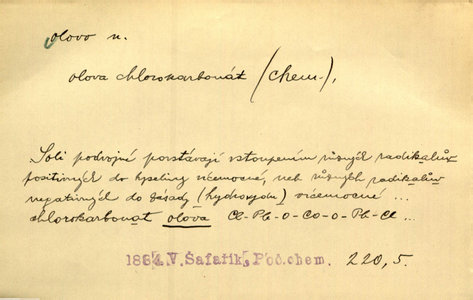 olovo n.
olova chlorokarbonát (chem.),
Soli podvojné povstávají vstoupením různých radikalův
positivných do kyseliny vícemocné, neb různých radikalův
negativných do zásady (hydroxydu) vícemocné ...
chlorokarbonat olova Cl-Pb-O-CO-O-Pb-Cl ...
V. Šafařík, Poč. chem. 220,5.